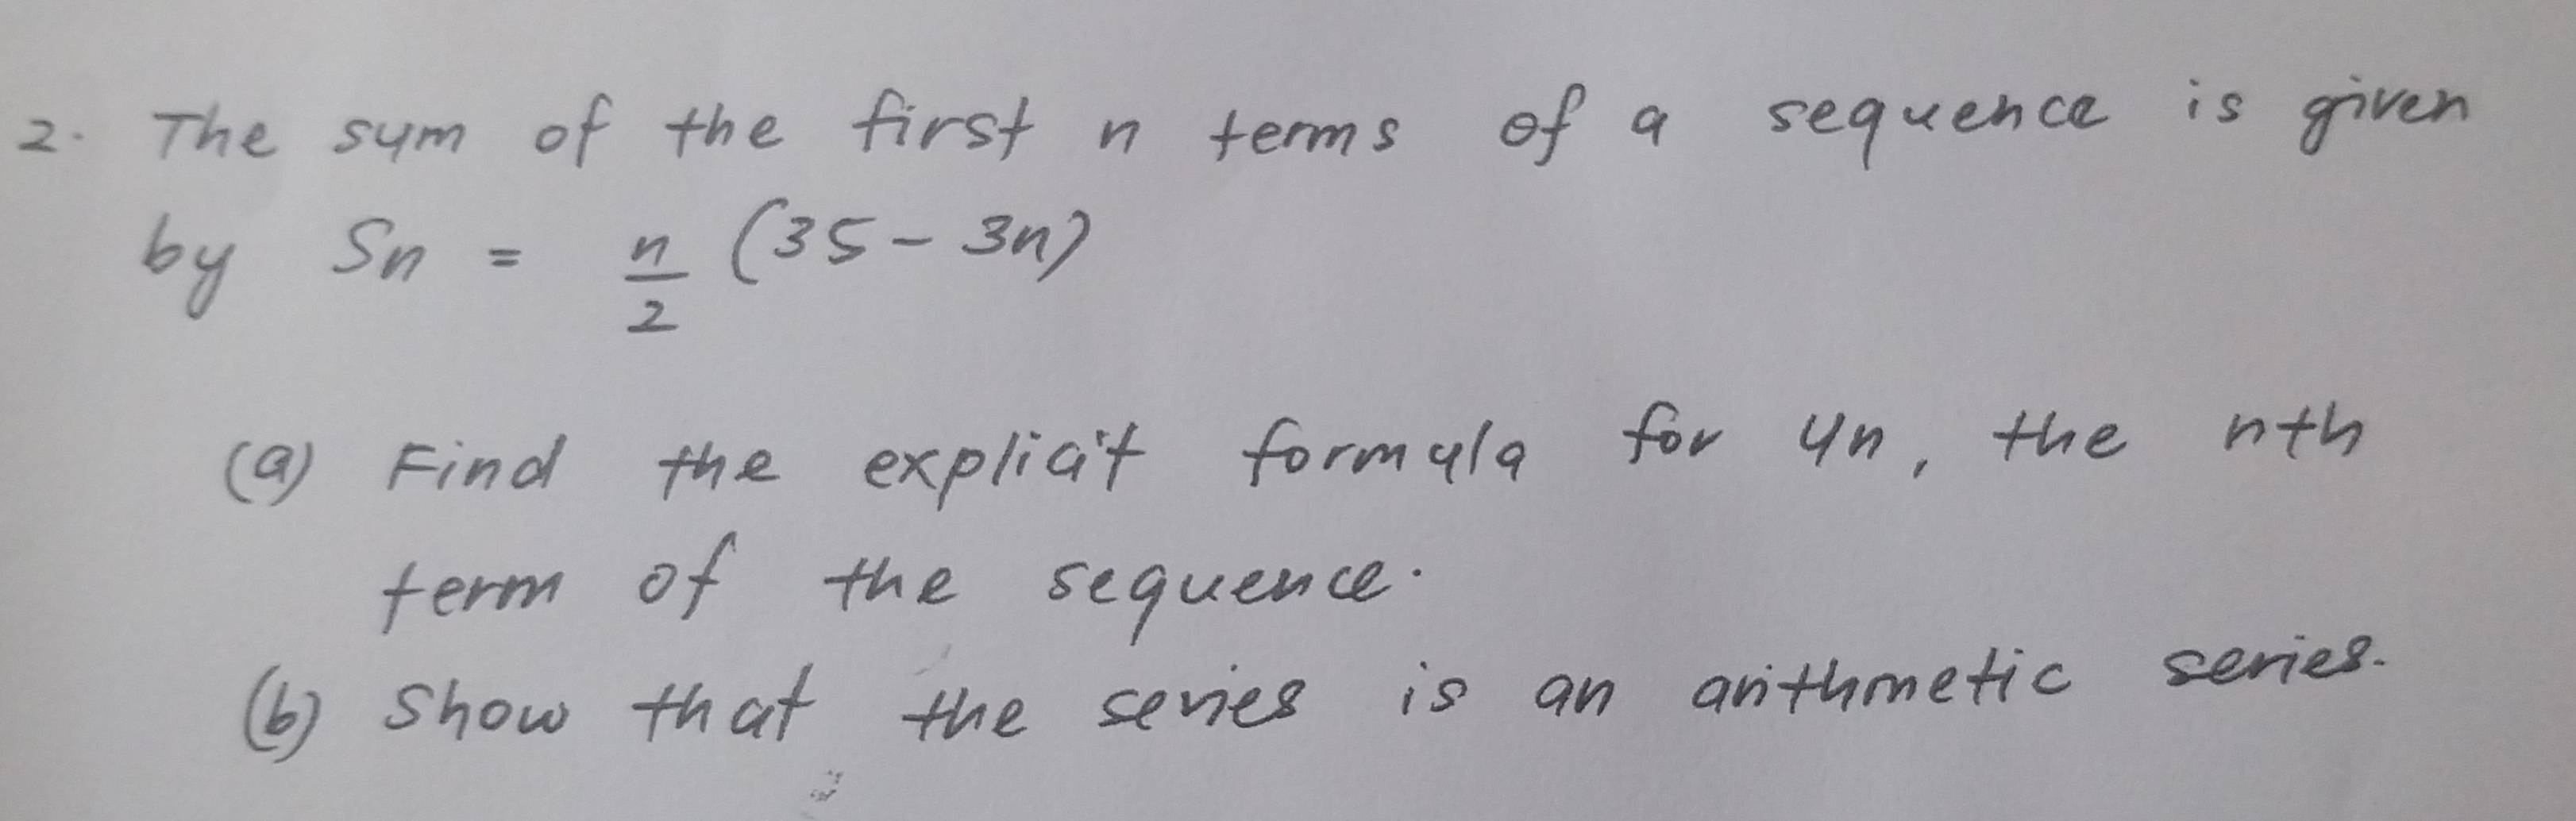 2. The sum of the first n terms of a sequence is given
by Sn = n/2 (35 - 3n)
(a) Find the explicit formula for un, the nth
term of the sequence.
(b) Show that the series is an arithmetic series.